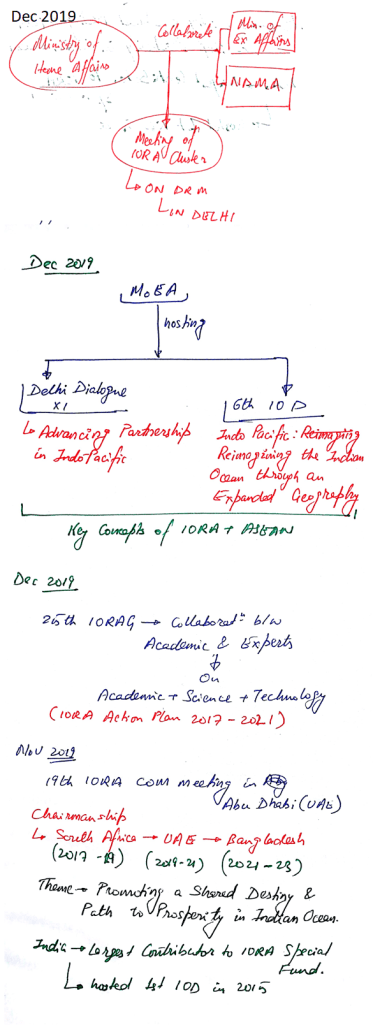 Dec 2019
Ministry of
Home Affairs
Collaborate
Min. of
Ex Affairs
NDMA
Meeting of
IORA Cluster
ON DRM
IN DELHI
Dec 2019
MoEA
hosting
Delhi Dialogue
XI
Advancing Partnership
in IndoPacific
6th IOD
Indo Pacific: Reimagining
Reimagining the Indian
Ocean through an
Expanded Geography
Key Concepts of IORA + ASEAN
Dec 2019
25th IORAG → Collaboratn b/w
Academic & Experts
On
Academic + Science + Technology
(IORA Action Plan 2017-2021)
Nov 2019
19th IORA COM meeting in
Abu Dhabi (UAE)
Chairmanship
South Africa → UAE → Bangladesh
(2017-19) (2019-21) (2021-23)
Theme → Promoting a Shared Destiny &
Path to Prosperity in Indian Ocean.
India → Largest Contributor to IORA Special
Fund.
hosted 1st IOD in 2015